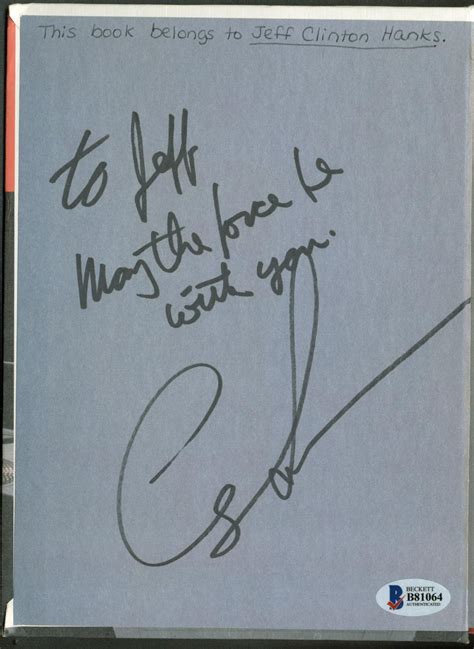 This book belongs to Jeff Clinton Hanks.
to Jeff
May the force be
with you.
BECKETT
B81064
AUTHENTICATED